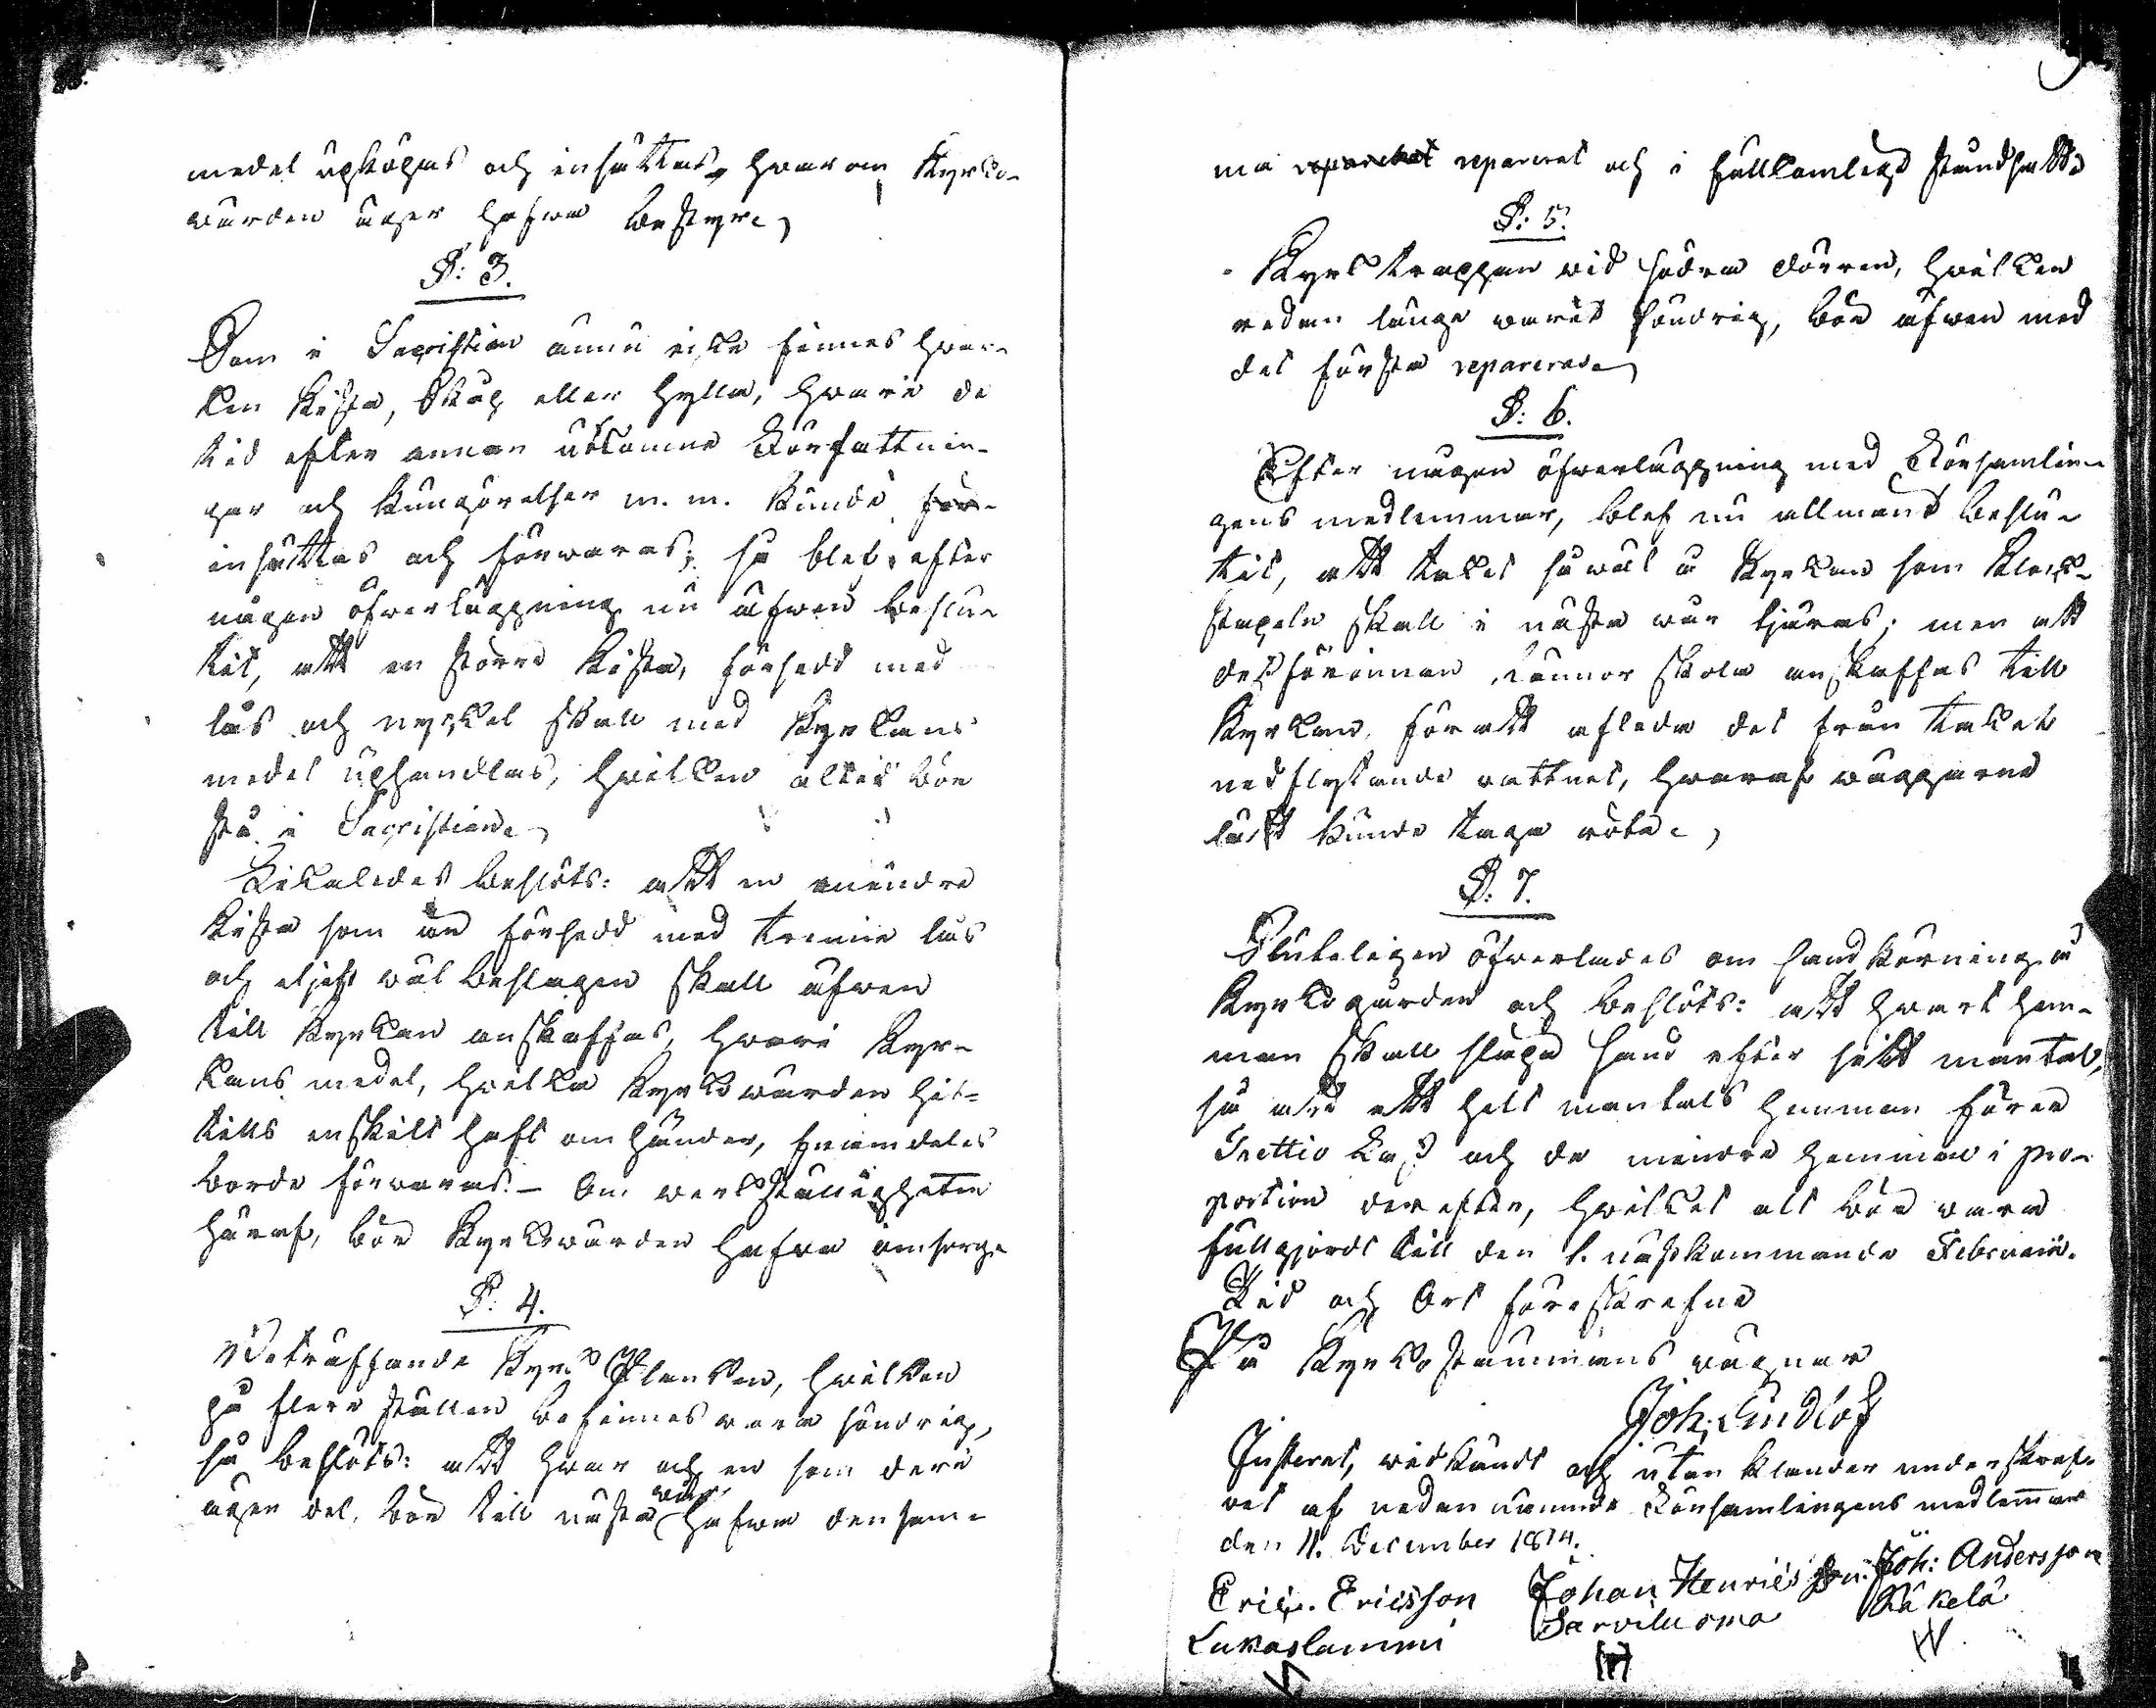 medel upköpas och insättas, hvarom Kyrko-
wärden äger hafwa bestyr.
§: 3.
Som i Sacristian ännu icke finnes hwar-
ken Kista, Skåp eller Hylla, hwari de
tid efter annan utkomne Författnin-
gar och kungörelser m. m. kunde för-
insättas och förwaras; så blef efter
någon öfwerläggning nu äfwen beslu-
tit, att en större Kista, försedd med
lås och nyckel skall med Kyrkans
medel uphandlas, hwilken altid bör
stå i Sacristian.
Likaledes beslöts: att en mindre
Kista som är försedd med trenne lås
och eljest wäl beslagen skall äfwen
till Kyrkan anskaffas, hwari Kyr-
kans medel, hwilka Kyrkowärden hit-
tills enskilt haft om händer, framdeles
borde förwaras. – Om werkställigheten
häraf, bör Kyrkowärden hafwa omsorg.
§: 4.
Beträffande Kyrko Planken, hwilken
på flere ställen befinnes wara söndrig,
så beslöts: att hwar och en som deri
äger del, bör till nästa wår hafwa densam-
ma reparerat reparerat och i fullkomligt ståndsatt.
§: 5.
Kyrktrappan wid södra dörren, hwilken
redan länge warit söndrig, bör äfwen med
det första repareras.
§: 6.
Efter någon öfwerläggning med Församlin-
gens medlemmar, blef nu allmänt beslu-
tit, att taket såwäl å Kyrkan som Klock-
stapeln skall i nästa wår tjäras; men att
dessförinnan rännor skola anskaffas till
Kyrkan, för att afleda det från taket
nedflytande wattnet, hwaraf wäggarne
lätt kunde taga röta.
§: 7.
Sluteligen öfwerlades om sandkörning å
Kyrkogården och beslöts: att hwart hem-
man skall släpa sand efter sitt mantal,
så att ett helt mantals hemman förer
Trettio Lass och de mindre hemman i pro-
portion derefter, hwilket alt bör wara
fullgjordt till den 1. nästkommande Februarii.
Tid och Ort föreskrefne
På Kyrkostämmans wägnar
Joh: Lindlöf
Justerat, widkändt och utan klander underskref-
wet af nedannämnde Församlingens medlemmar
den 11. December 1814.
Eric. Ericsson Johan Henricsson Joh: Andersson
Lukaslammi Sarviluoma Käkelä